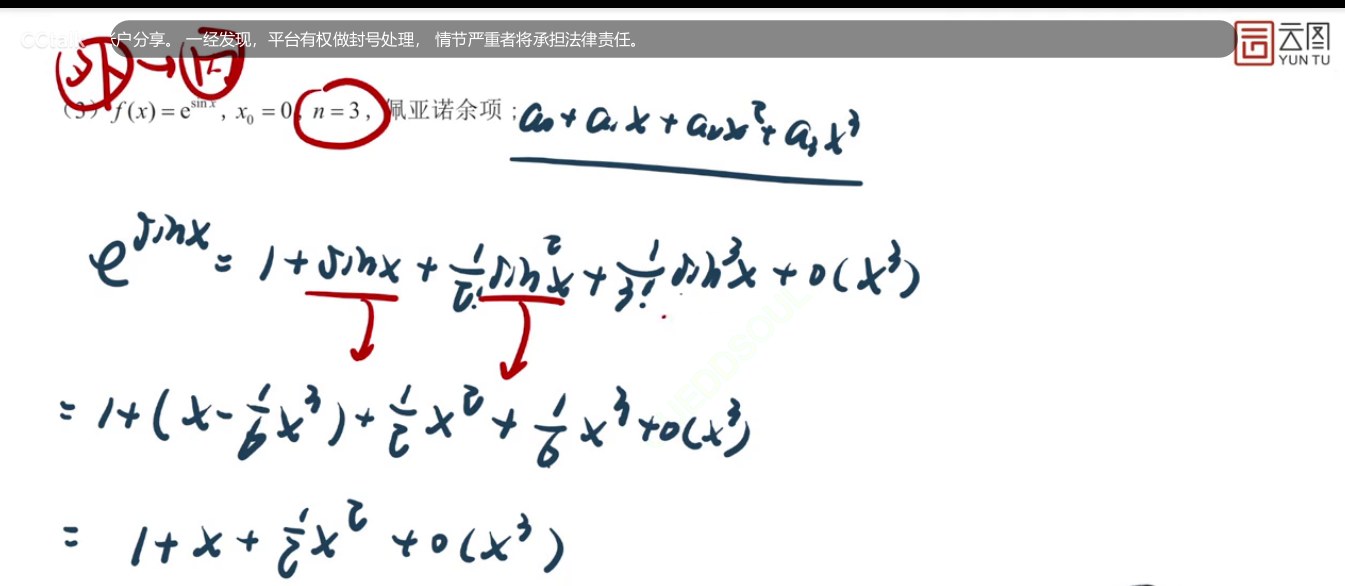 CCtalk 户分享。一经发现，平台有权做封号处理， 情节严重者将承担法律责任。
云图
YUN TU
外→内
(3) f(x)=e^{sin x}, x₀=0, n=3, 佩亚诺余项；a₀+a₁x+a₂x²+a₃x³
e^{sinx} = 1+sinx+1/2! sin²x+1/3! sin³x+o(x³)
= 1+(x-1/6 x³)+1/2 x²+1/6 x³+o(x³)
= 1+x+1/2 x²+o(x³)